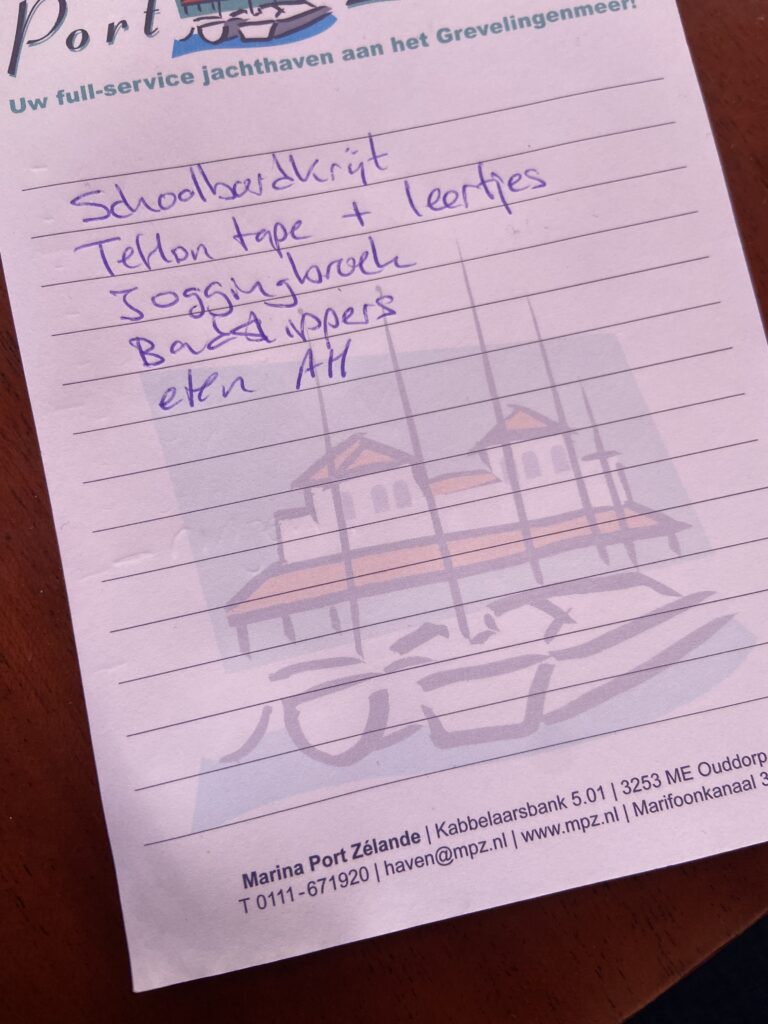 Port
Uw full-service jachthaven aan het Grevelingenmeer!
Schoolbordkrijt
Teflon tape + leertjes
Joggingbroek
Badslippers
eten AH
Marina Port Zélande | Kabbelaarsbank 5.01 | 3253 ME Ouddorp
T 0111-671920 | haven@mpz.nl | www.mpz.nl | Marifoonkanaal 3